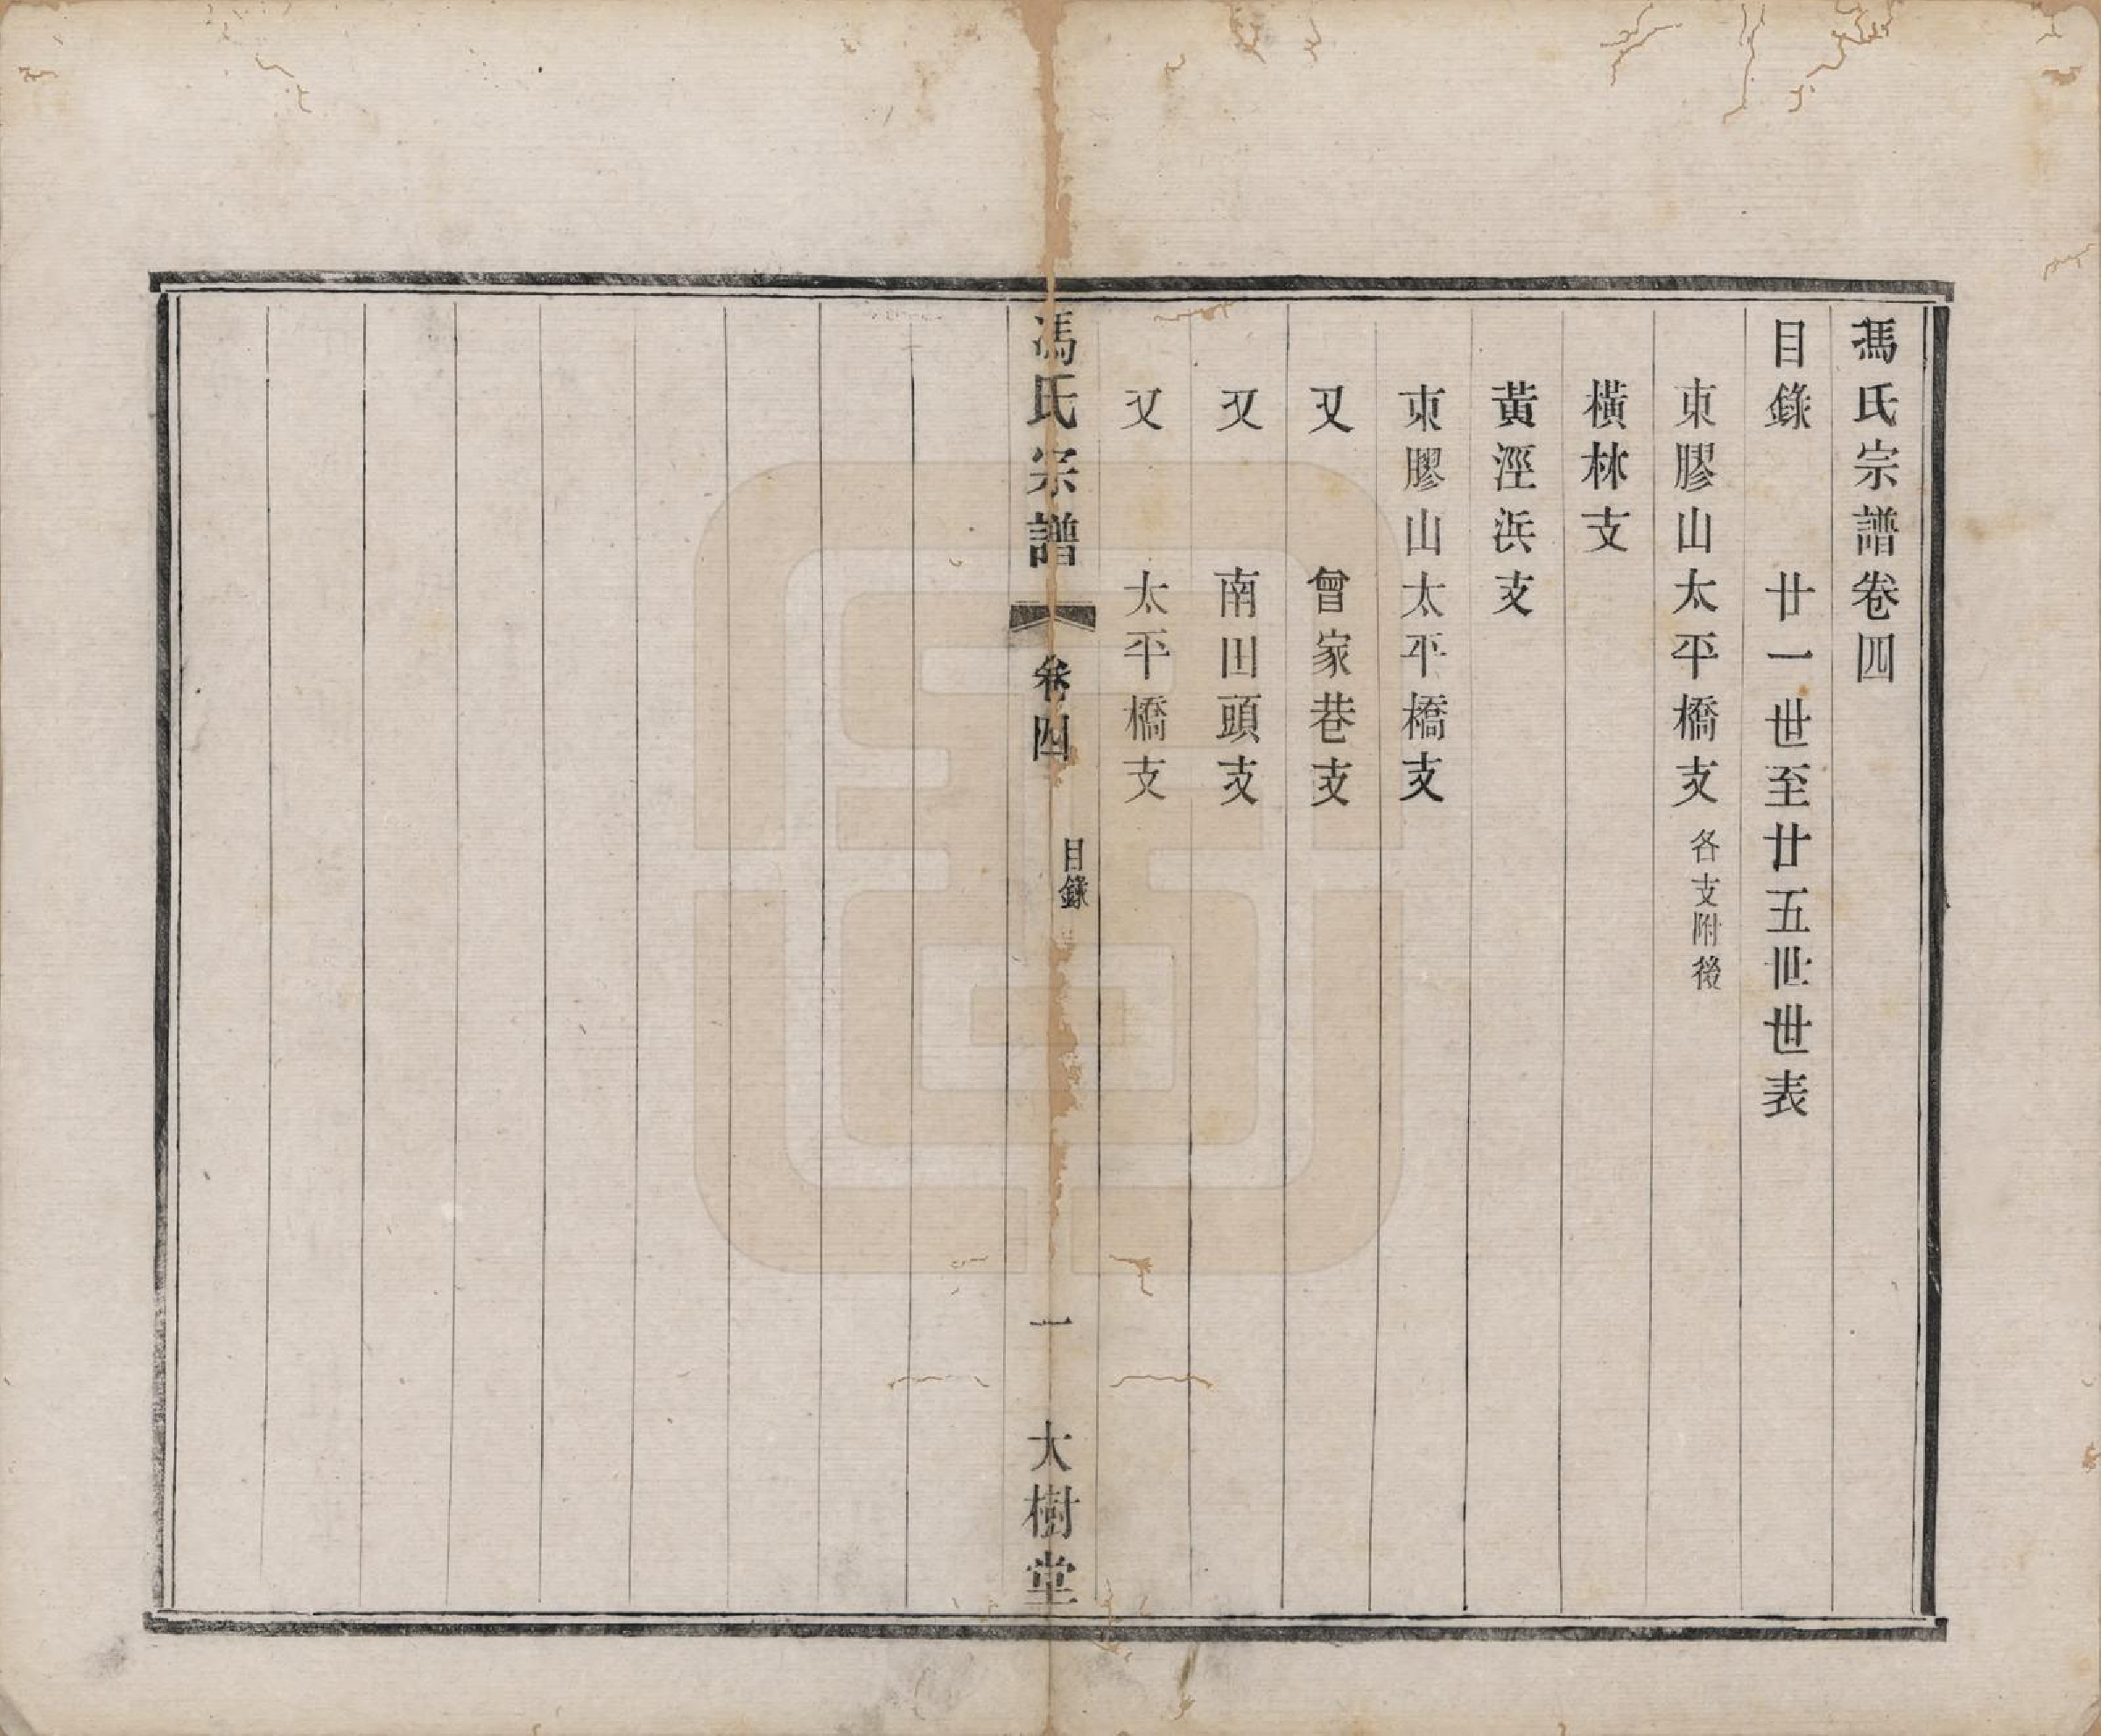 馮氏宗譜卷四
目錄　廿一世至廿五世世表
東膠山太平橋支各支附後
橫林支
黃涇浜支
東膠山太平橋支
又　曾家巷支
又　南田頭支
又　太平橋支
馮氏宗譜　卷四　目錄　一　大樹堂